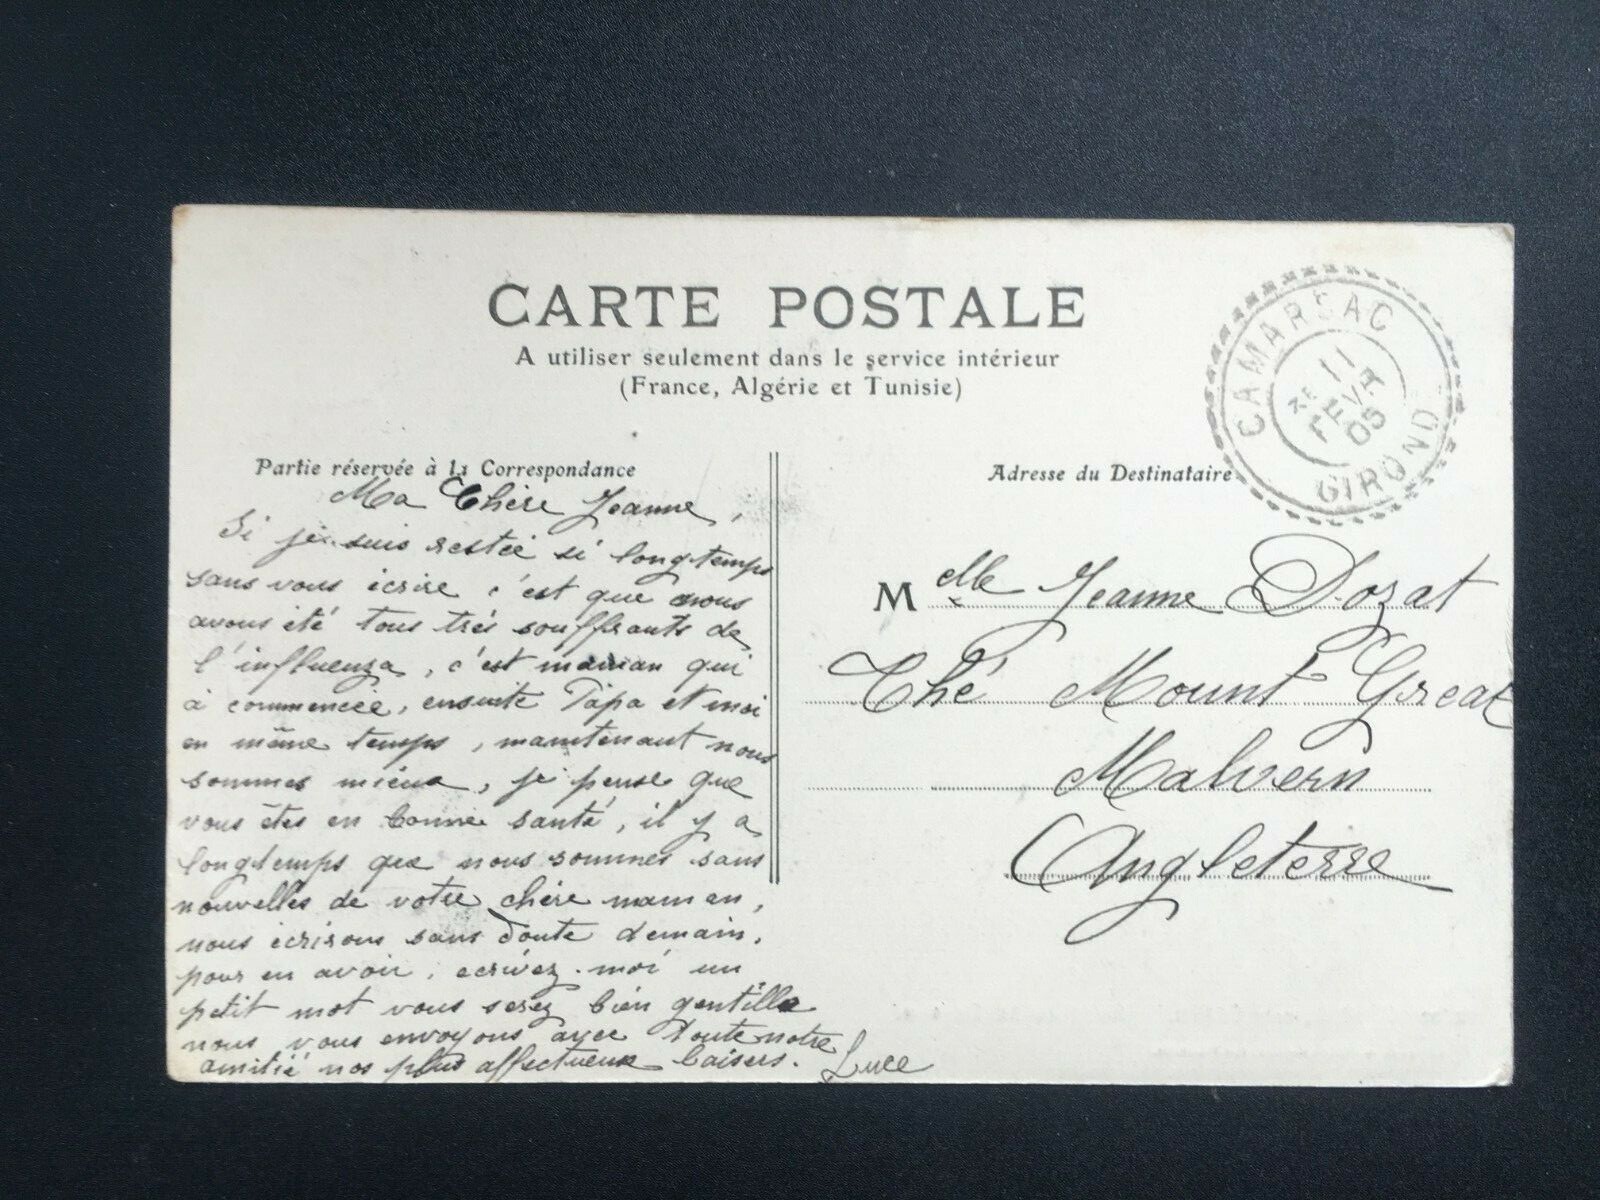 CARTE POSTALE
A utiliser seulement dans le service intérieur
(France, Algérie et Tunisie)
CAMARSAC
11
FEVR
05
GIROND
Partie réservée à la Correspondance
Ma Chère Jeanne,
Si je suis restée si longtemps
sans vous écrire c'est que nous
avons été tous très souffrants de
l'influenza, c'est maman qui
à commencée, ensuite Papa et moi
en même temps, maintenant nous
sommes mieux, je pense que
vous êtes en bonne santé, il y a
longtemps que nous sommes sans
nouvelles de votre chère maman,
nous écrirons sans doute demain,
pour en avoir, ecrivez-moi un
petit mot vous serez bien gentille
nous vous envoyons avec toute notre
amitié nos plus affectueux baisers. Luce
Adresse du Destinataire
Melle Jeanne Dozat
Thé Mount Great
Malvern
Angleterre